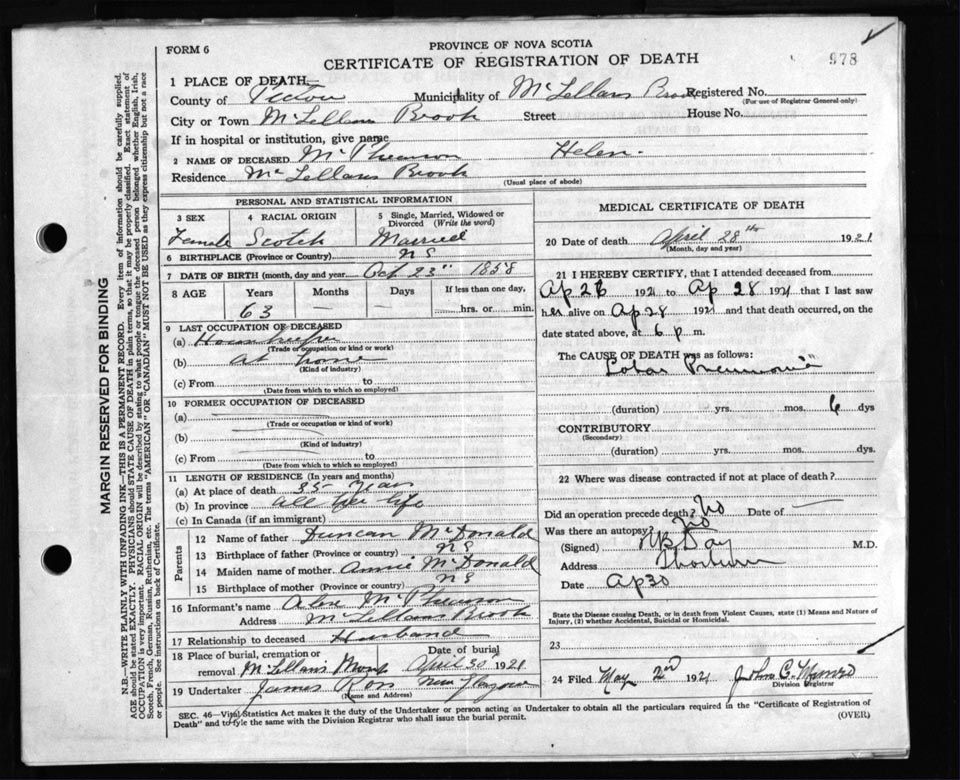 FORM 6
PROVINCE OF NOVA SCOTIA
CERTIFICATE OF REGISTRATION OF DEATH
978
1 PLACE OF DEATH
County of Pictou Municipality of McLellans Brook Registered No.
(For use of Registrar General only)
City or Town McLellans Brook Street House No.
If in hospital or institution, give name
2 NAME OF DECEASED McPherson Helen.
Residence McLellans Brook
(Usual place of abode)
MARGIN RESERVED FOR BINDING
N.B.—WRITE PLAINLY WITH UNFADING INK—THIS IS A PERMANENT RECORD. Every item of information should be carefully supplied.
AGE should be stated EXACTLY. PHYSICIANS should STATE CAUSE OF DEATH in plain terms, so that it may be properly classified. Exact statement of
OCCUPATION is very important. RACIAL ORIGIN will be described by stating to what people or tongue the deceased person belonged whether English, Irish,
Scotch, French, German, Russian, Ruthenian, etc. The terms "AMERICAN" OR "CANADIAN" MUST NOT BE USED as they express citizenship but not a race
or people. See instructions on back of Certificate.
PERSONAL AND STATISTICAL INFORMATION
3 SEX 4 RACIAL ORIGIN 5 Single, Married, Widowed or
Divorced (Write the word)
Female Scotch Married
6 BIRTHPLACE (Province or Country) N S
7 DATE OF BIRTH (month, day and year) Oct 23" 1858
8 AGE Years Months Days If less than one day,
63 — hrs. or min.
9 LAST OCCUPATION OF DECEASED
(a) Housewife
(Trade or occupation or kind or work)
(b) At home
(Kind of industry)
(c) From to
(Date from which to which so employed)
10 FORMER OCCUPATION OF DECEASED
(a)
(Trade or occupation or kind of work)
(b)
(Kind of industry)
(c) From to
(Date from which to which so employed)
11 LENGTH OF RESIDENCE (In years and months)
(a) At place of death 35 years
(b) In province all her life
(c) In Canada (if an immigrant)
Parents
12 Name of father Duncan McDonald
13 Birthplace of father (Province or country) N S
14 Maiden name of mother Annie McDonald
15 Birthplace of mother (Province or country) N S
16 Informant's name McPherson
Address McLellans Brook
17 Relationship to deceased Husband
18 Place of burial, cremation or Date of burial
removal McLellans April 30 1921
19 Undertaker James Ross New Glasgow
(Name and Address)
MEDICAL CERTIFICATE OF DEATH
20 Date of death April 28th 1921
(Month, day and year)
21 I HEREBY CERTIFY, that I attended deceased from
Ap 26 1921 to Ap 28 1921 that I last saw
her alive on Ap 28 1921 and that death occurred, on the
date stated above, at 6 p m.
The CAUSE OF DEATH was as follows:
Lobar Pneumonia
(duration) yrs. mos. 6 dys
CONTRIBUTORY
(Secondary)
(duration) yrs. mos. dys.
22 Where was disease contracted if not at place of death?
Did an operation precede death? No Date of
Was there an autopsy? No
(Signed) Day M.D.
Address Thorburn
Date Ap 30
State the Disease causing Death, or in death from Violent Causes, state (1) Means and Nature of
Injury, (2) whether Accidental, Suicidal or Homicidal.
23
24 Filed May 2nd 1921 John C. Munro
Division Registrar
SEC. 46—Vital Statistics Act makes it the duty of the Undertaker or person acting as Undertaker to obtain all the particulars required in the "Certificate of Registration of
Death" and to fyle the same with the Division Registrar who shall issue the burial permit.
(OVER)